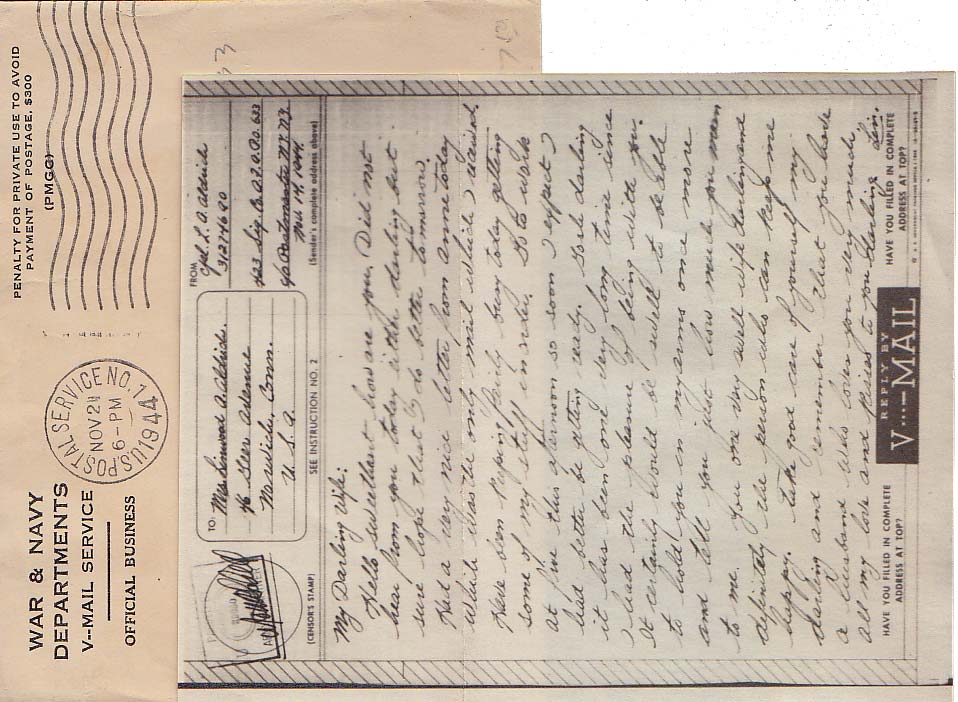 PENALTY FOR PRIVATE USE TO AVOID
PAYMENT OF POSTAGE, $300
(PMGC)
WAR & NAVY
DEPARTMENTS
V--MAIL SERVICE
OFFICIAL BUSINESS
U.S. POSTAL SERVICE NO. 7
NOV 24
6-PM
1944
(CENSOR'S STAMP)
TO:
Mrs. Linwood A. Aldrich.
46 Geer Avenue
Norwich, Conn.
U. S. A
SEE INSTRUCTION NO. 2
FROM
Cpl. L. A. Aldrich
31214600
423 Sig. Co. A.P.O. 633
c/o Postmaster N.Y. N.Y.
Nov. 14, 1944.
(Sender's complete address above)
My Darling Wife:
Hello sweetheart how are you. Did not
hear from you today either darling but
sure hope that to do better tomorrow.
Had a very nice letter from Anne today
which was the only mail which I received.
Have been keeping fairly busy today getting
some of my stuff in order. Go to work
at five this afternoon so soon I expect I
had better be getting ready. Gosh darling
it has been one very long time since
I had the pleasure of being with you.
It certainly would be swell to be able
to hold you in my arms once more
and tell you just how much you mean
to me. You are very swell wife darling and
definitely the person who can keep me
happy. Take good care of yourself my
darling and remember that you have
a husband who loves you very much.
All my love and kisses to you darling Lin.
HAVE YOU FILLED IN COMPLETE
ADDRESS AT TOP?
REPLY BY
V···—MAIL
HAVE YOU FILLED IN COMPLETE
ADDRESS AT TOP?